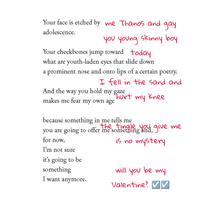 Your face is etched by
adolescence.
me Thanos and gay
you young skinny boy
Your cheekbones jump toward
today
what are youth-laden eyes that slide down
a prominent nose and onto lips of a certain poetry.
I fell in the sand and
hurt my knee
And the way you hold my gaze
makes me fear my own age
because something in me tells me
you are going to offer me something kind,
the tingle you give me
for now,
is no mystery
I'm not sure
it's going to be
something
I want anymore.
will you be my
Valentine? ☑☑